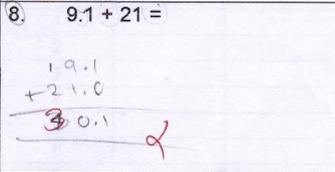 8. 9.1 + 21 =
19.1
+21.0
30.1